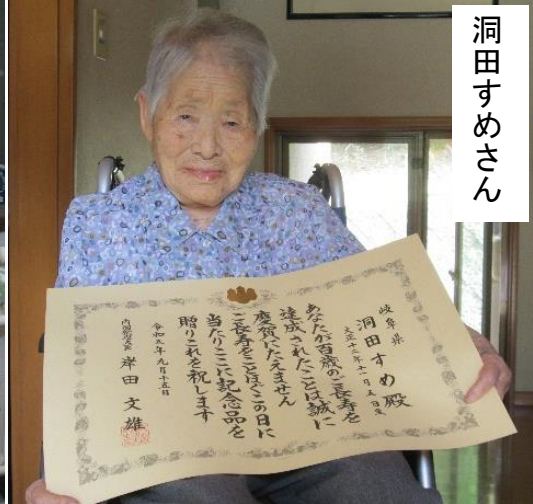 洞田すめさん
岐阜県
洞田すめ殿
大正十二年十一月五日生
あなたが百歳のご長寿を
達成されたことは誠に
慶賀にたえません
ご長寿をことほぐこの日に
当たりここに記念品を
贈りこれを祝します
令和五年九月十五日
内閣総理大臣 岸田文雄